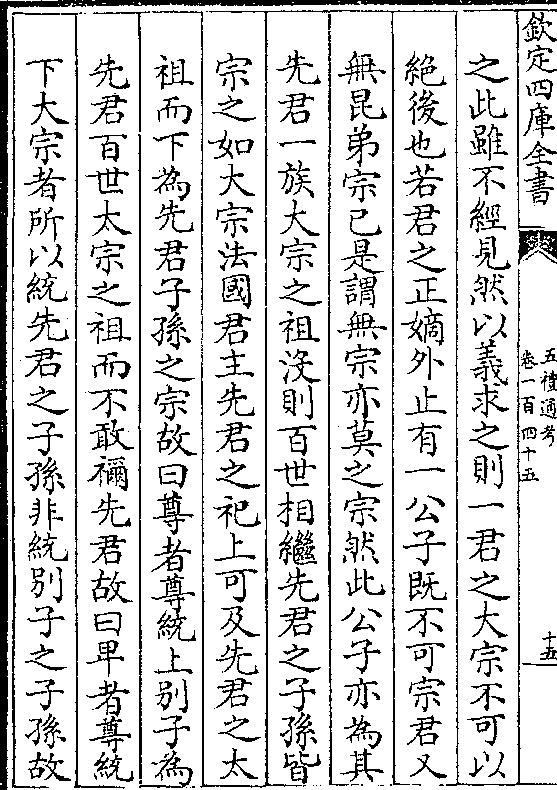 欽定四庫全書
五禮通考
卷一百四十五
十五
之此雖不經見然以義求之則一君之大宗不可以
絶後也若君之正嫡外止有一公子既不可宗君又
無昆弟宗己是謂無宗亦莫之宗然此公子亦為其
先君一族大宗之祖沒則百世相繼先君之子孫皆
宗之如大宗法國君主先君之祀上可及先君之太
祖而下為先君子孫之宗故曰尊者尊統上别子為
先君百世太宗之祖而不敢禰先君故曰卑者尊統
下大宗者所以統先君之子孫非統别子之子孫故